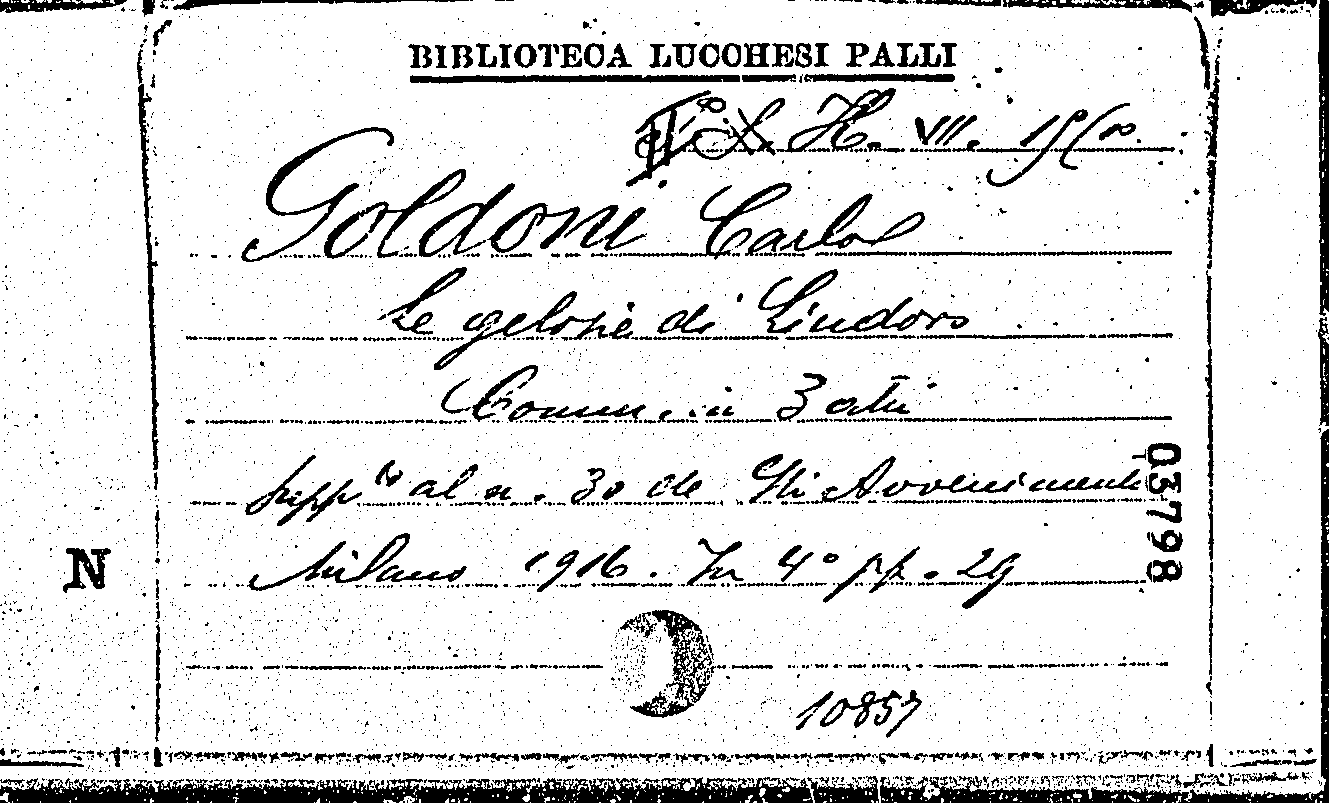 BIBLIOTECA LUCCHESI PALLI
H. VII. 15(10.
Goldoni Carlo
Le gelosie di Lindoro
Comm. in 3 atti
Supp.to al n. 30 de Gli Avvenimenti
Milano 1916. In 4° pp. 29
03798
N
10857